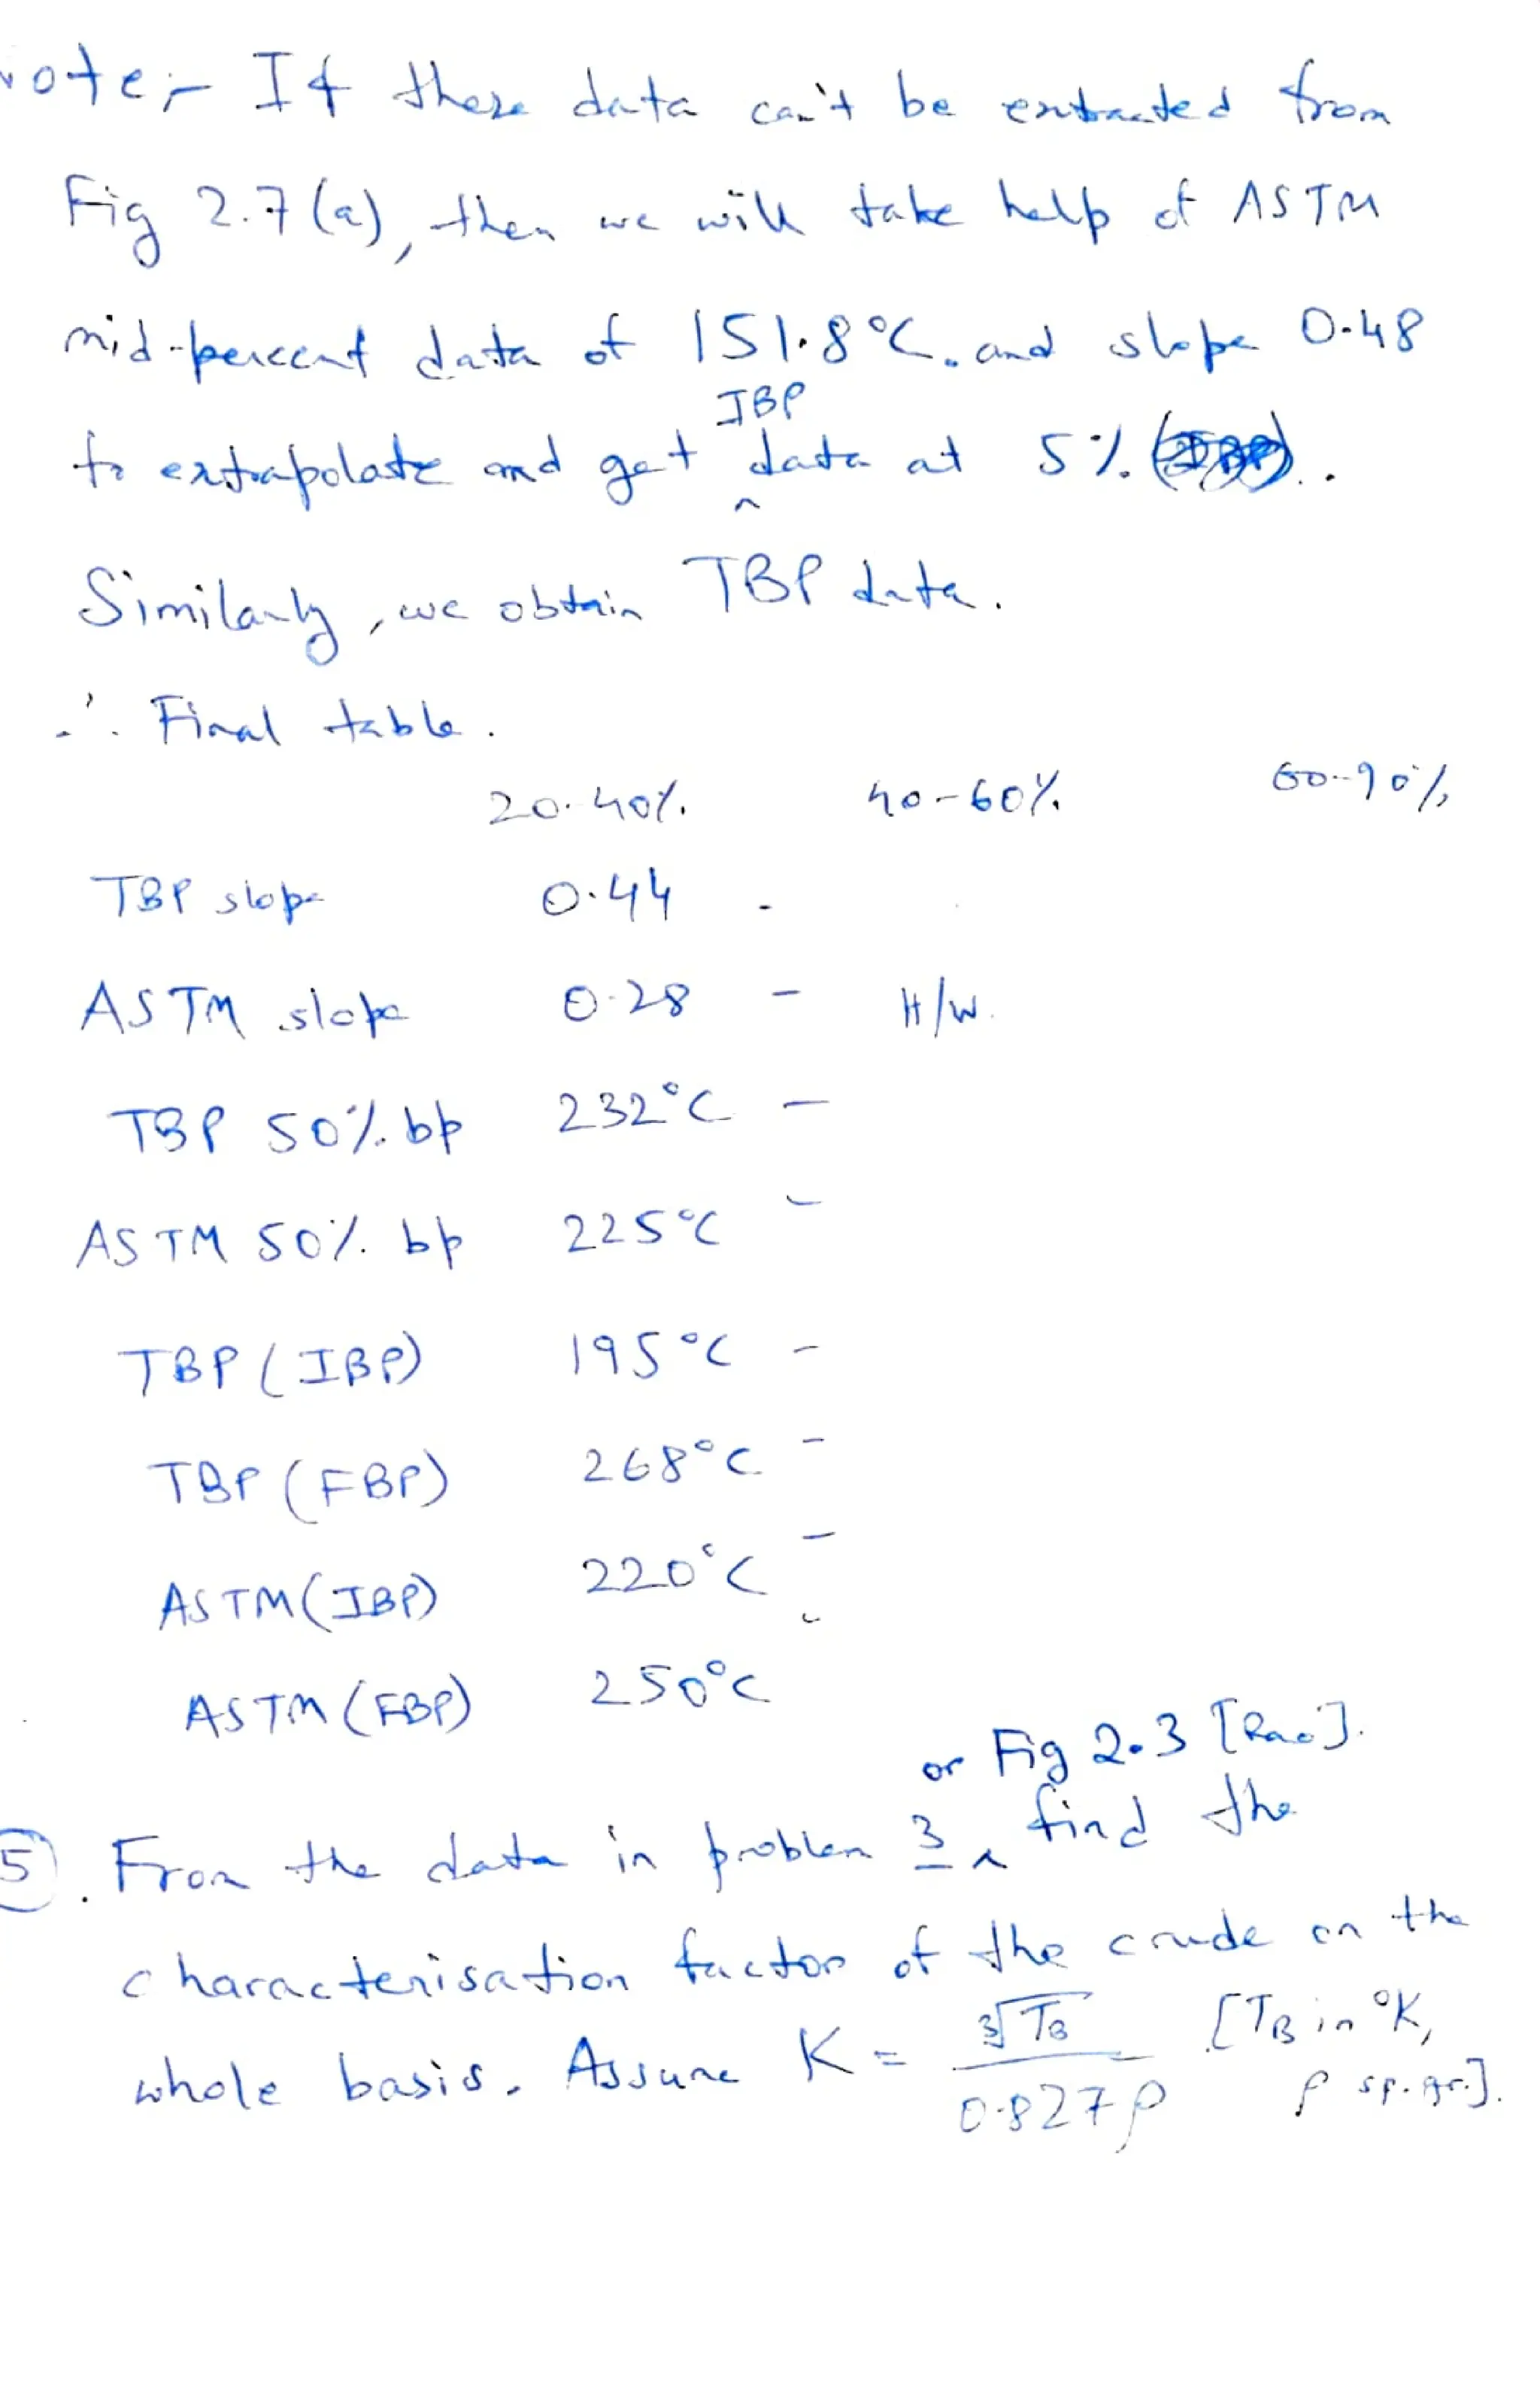 ote:- If these data can't be extracted from
Fig 2.7(a), then we will take help of ASTM
mid-percent data of 151.8°C. and slope 0.48
IBP
to extrapolate and get ^ data at 5%.
Similarly, we obtain TBP data.
∴ Final table.
20-40% 40-60% 60-90%
TBP slope 0.44 -
ASTM slope 0.28 - H/W.
TBP 50% bp 232°C -
ASTM 50% bp 225°C -
TBP (IBP) 195°C -
TBP (FBP) 268°C -
ASTM (IBP) 220°C -
ASTM (FBP) 250°C
or Fig 2.3 [Rao].
5. From the data in problem 3 ^ find the
characterisation factor of the crude on the
whole basis. Assume K = ∛TB / 0.827ρ [TB in °K, ρ sp.gr.].